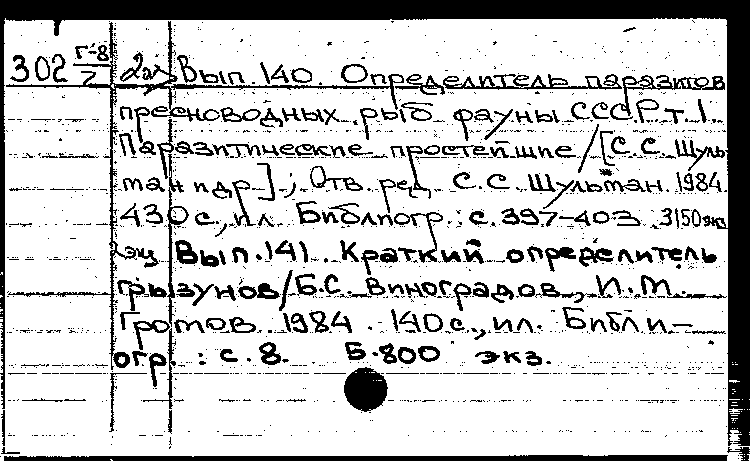 302 Г-8/2 2эк Вып. 140. Определитель паразитов
пресноводных рыб фауны СССР т 1.
Паразитические простейшие / [С.С. Шуль
ман и др.] ; Отв. ред. С.С. Шульман. 1984
430 с., ил. Библиогр.: с. 397-403. 3150экз
2эк Вып. 141. Краткий определитель
грызунов / Б.С. Виноградов, И.М.
Громов. 1984. 140 с., ил. Библи-
огр. : с. 8. 5.800 экз.